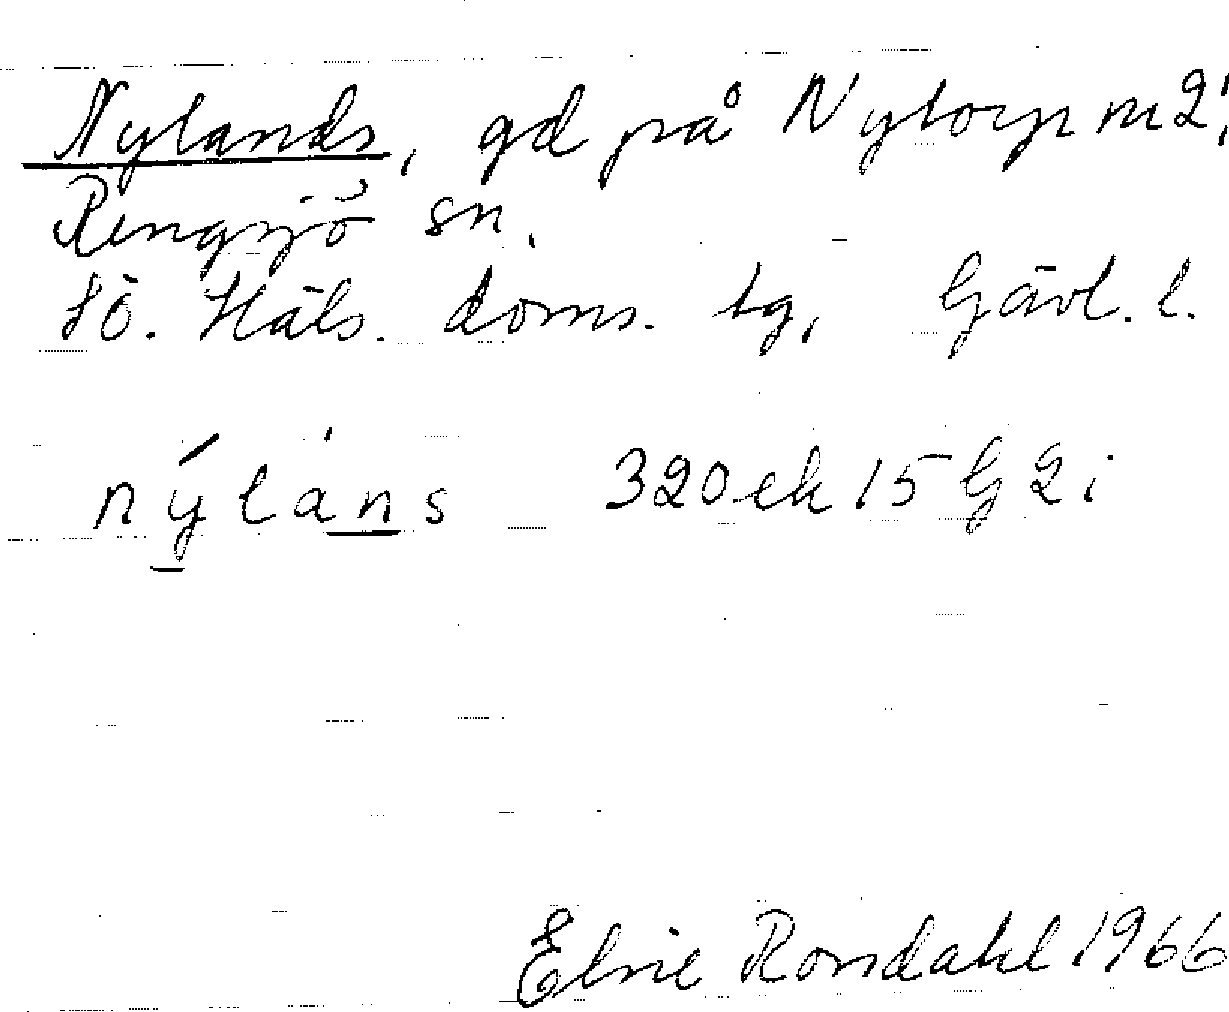 Nylands, gd på Nytorp nr 2,
Rengsjö sn.
Sö. Häls. doms. tg, Gävl. l.
nýláns 320 ek 15 G 2 i
Elsie Rondahl 1966